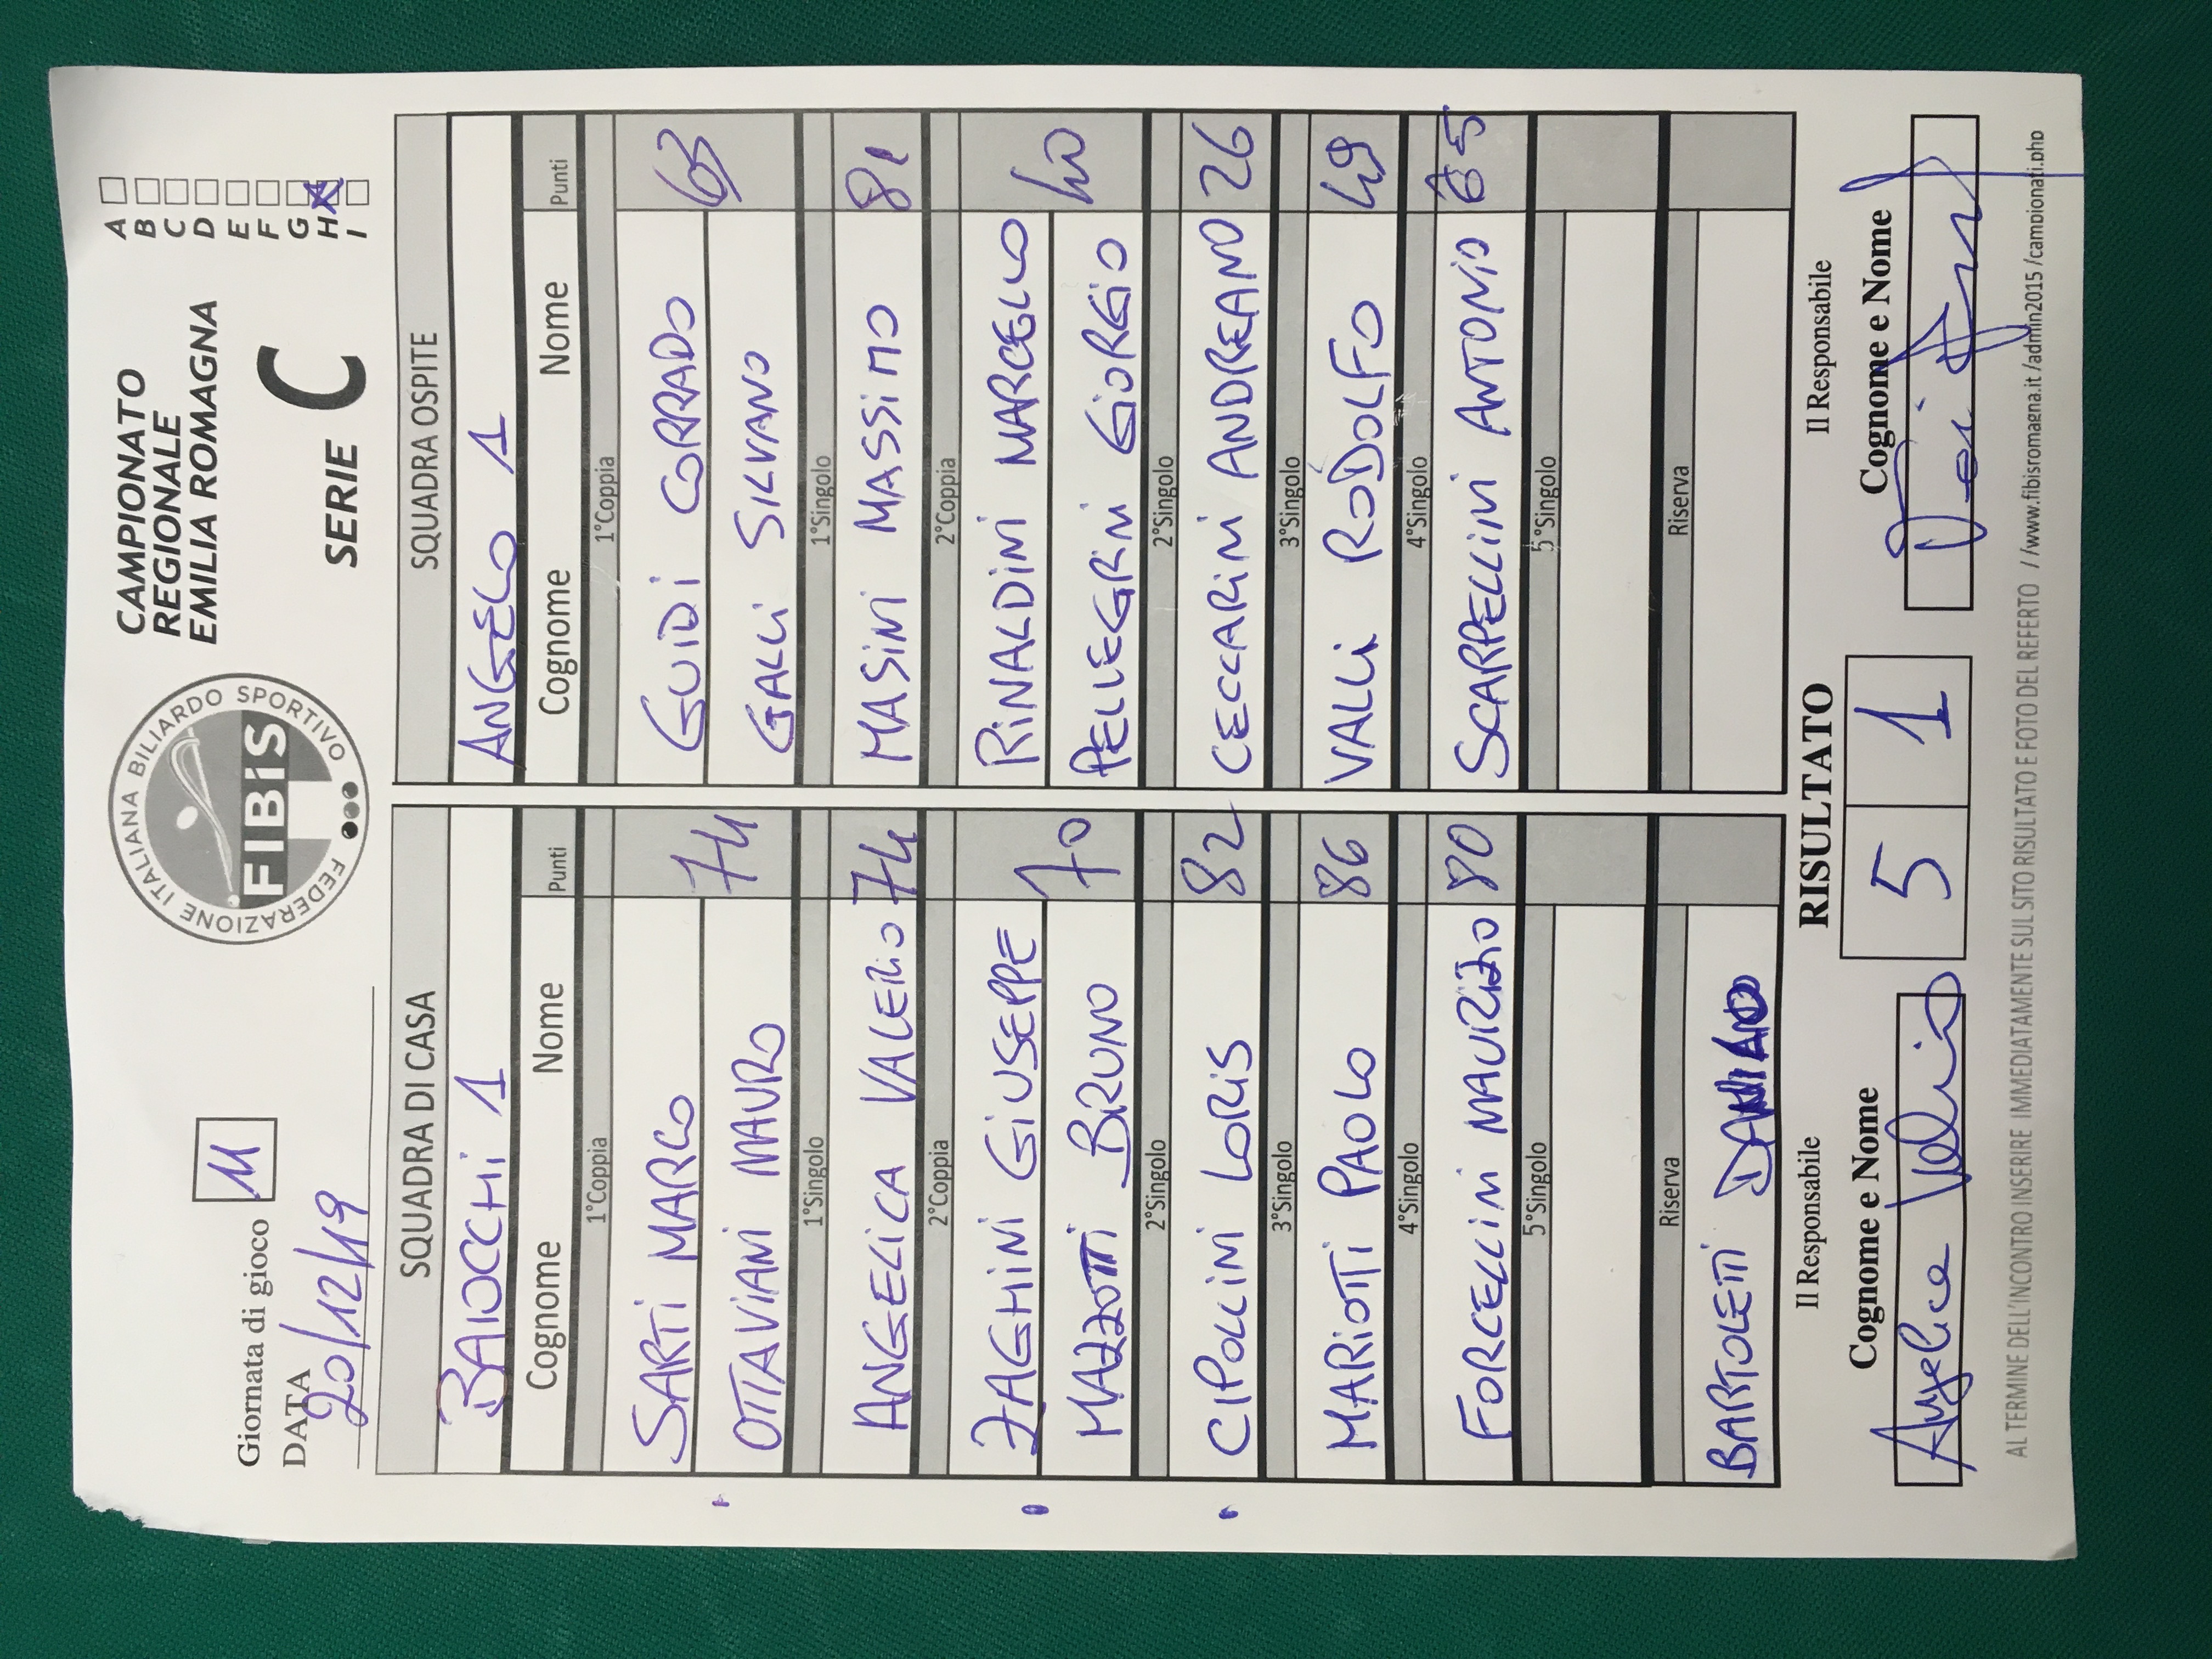 Giornata di gioco 11
DATA 20/12/19
FEDERAZIONE ITALIANA BILIARDO SPORTIVO
FIBIS
CAMPIONATO
REGIONALE
EMILIA ROMAGNA
SERIE C
A
B
C
D
E
F
G
H X
I
SQUADRA DI CASA SQUADRA OSPITE
BAIOCCHI 1 ANGELO 1
Cognome Nome Punti Cognome Nome Punti
1°Coppia 1°Coppia
SARTI MARCO 74 GUIDI CORRADO 63
OTTAVIANI MAURO GALLI SILVANO
1°Singolo 1°Singolo
ANGELICA VALERIO 74 MASINI MASSIMO 81
2°Coppia 2°Coppia
ZAGHINI GIUSEPPE 70 RINALDINI MARCELLO 40
MAZZOTTI BRUNO PELLEGRINI GIORGIO
2°Singolo 2°Singolo
CIPOLLINI LORIS 82 CECCARINI ANDREANO 26
3°Singolo 3°Singolo
MARIOTTI PAOLO 86 VALLI RODOLFO 49
4°Singolo 4°Singolo
FORCELLINI MAURIZIO 80 SCARPELLINI ANTONIO 65
5°Singolo 5°Singolo
Riserva Riserva
BARTOLETTI
Il Responsabile RISULTATO Il Responsabile
Cognome e Nome 5 1 Cognome e Nome
Angelica Valerio
AL TERMINE DELL'INCONTRO INSERIRE IMMEDIATAMENTE SUL SITO RISULTATO E FOTO DEL REFERTO / /www.fibisromagna.it /admin2015 /campionati.php